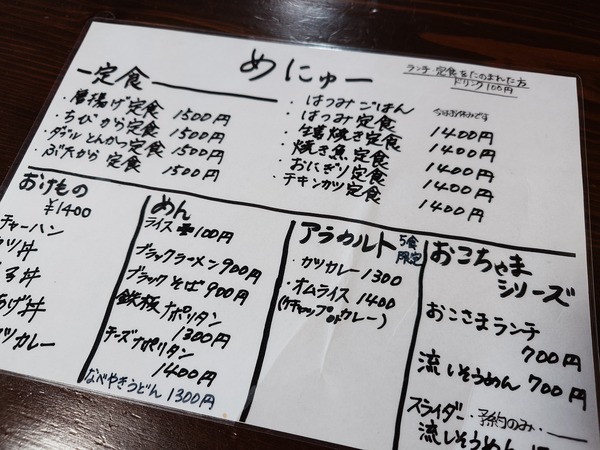 めにゅー
ランチ・定食をたのまれた方
ドリンク100円
定食
・唐揚げ定食 1500円
・ちびから定食 1500円
・ダブルとんかつ定食 1500円
・ぶたから定食 1500円
・はつみごはん
・はつみ定食 1400円
・生姜焼き定食 1400円
・焼き魚定食 1400円
・おにぎり定食 1400円
・チキンカツ定食 1400円
おけもの
¥1400
チャーハン
カツ丼
子丼
あげ丼
カツカレー
めん
ライス 100円
ブラックラーメン 900円
ブラックそば 900円
鉄板ナポリタン
1300円
チーズナポリタン
1400円
なべやきうどん 1300円
アラカルト 5食限定
・カツカレー 1300
・オムライス 1400
(ケチャップorカレー)
おこちゃま
シリーズ
おこさまランチ
700円
流しそうめん 700円
スライダー・予約のみ・
流しそうめん